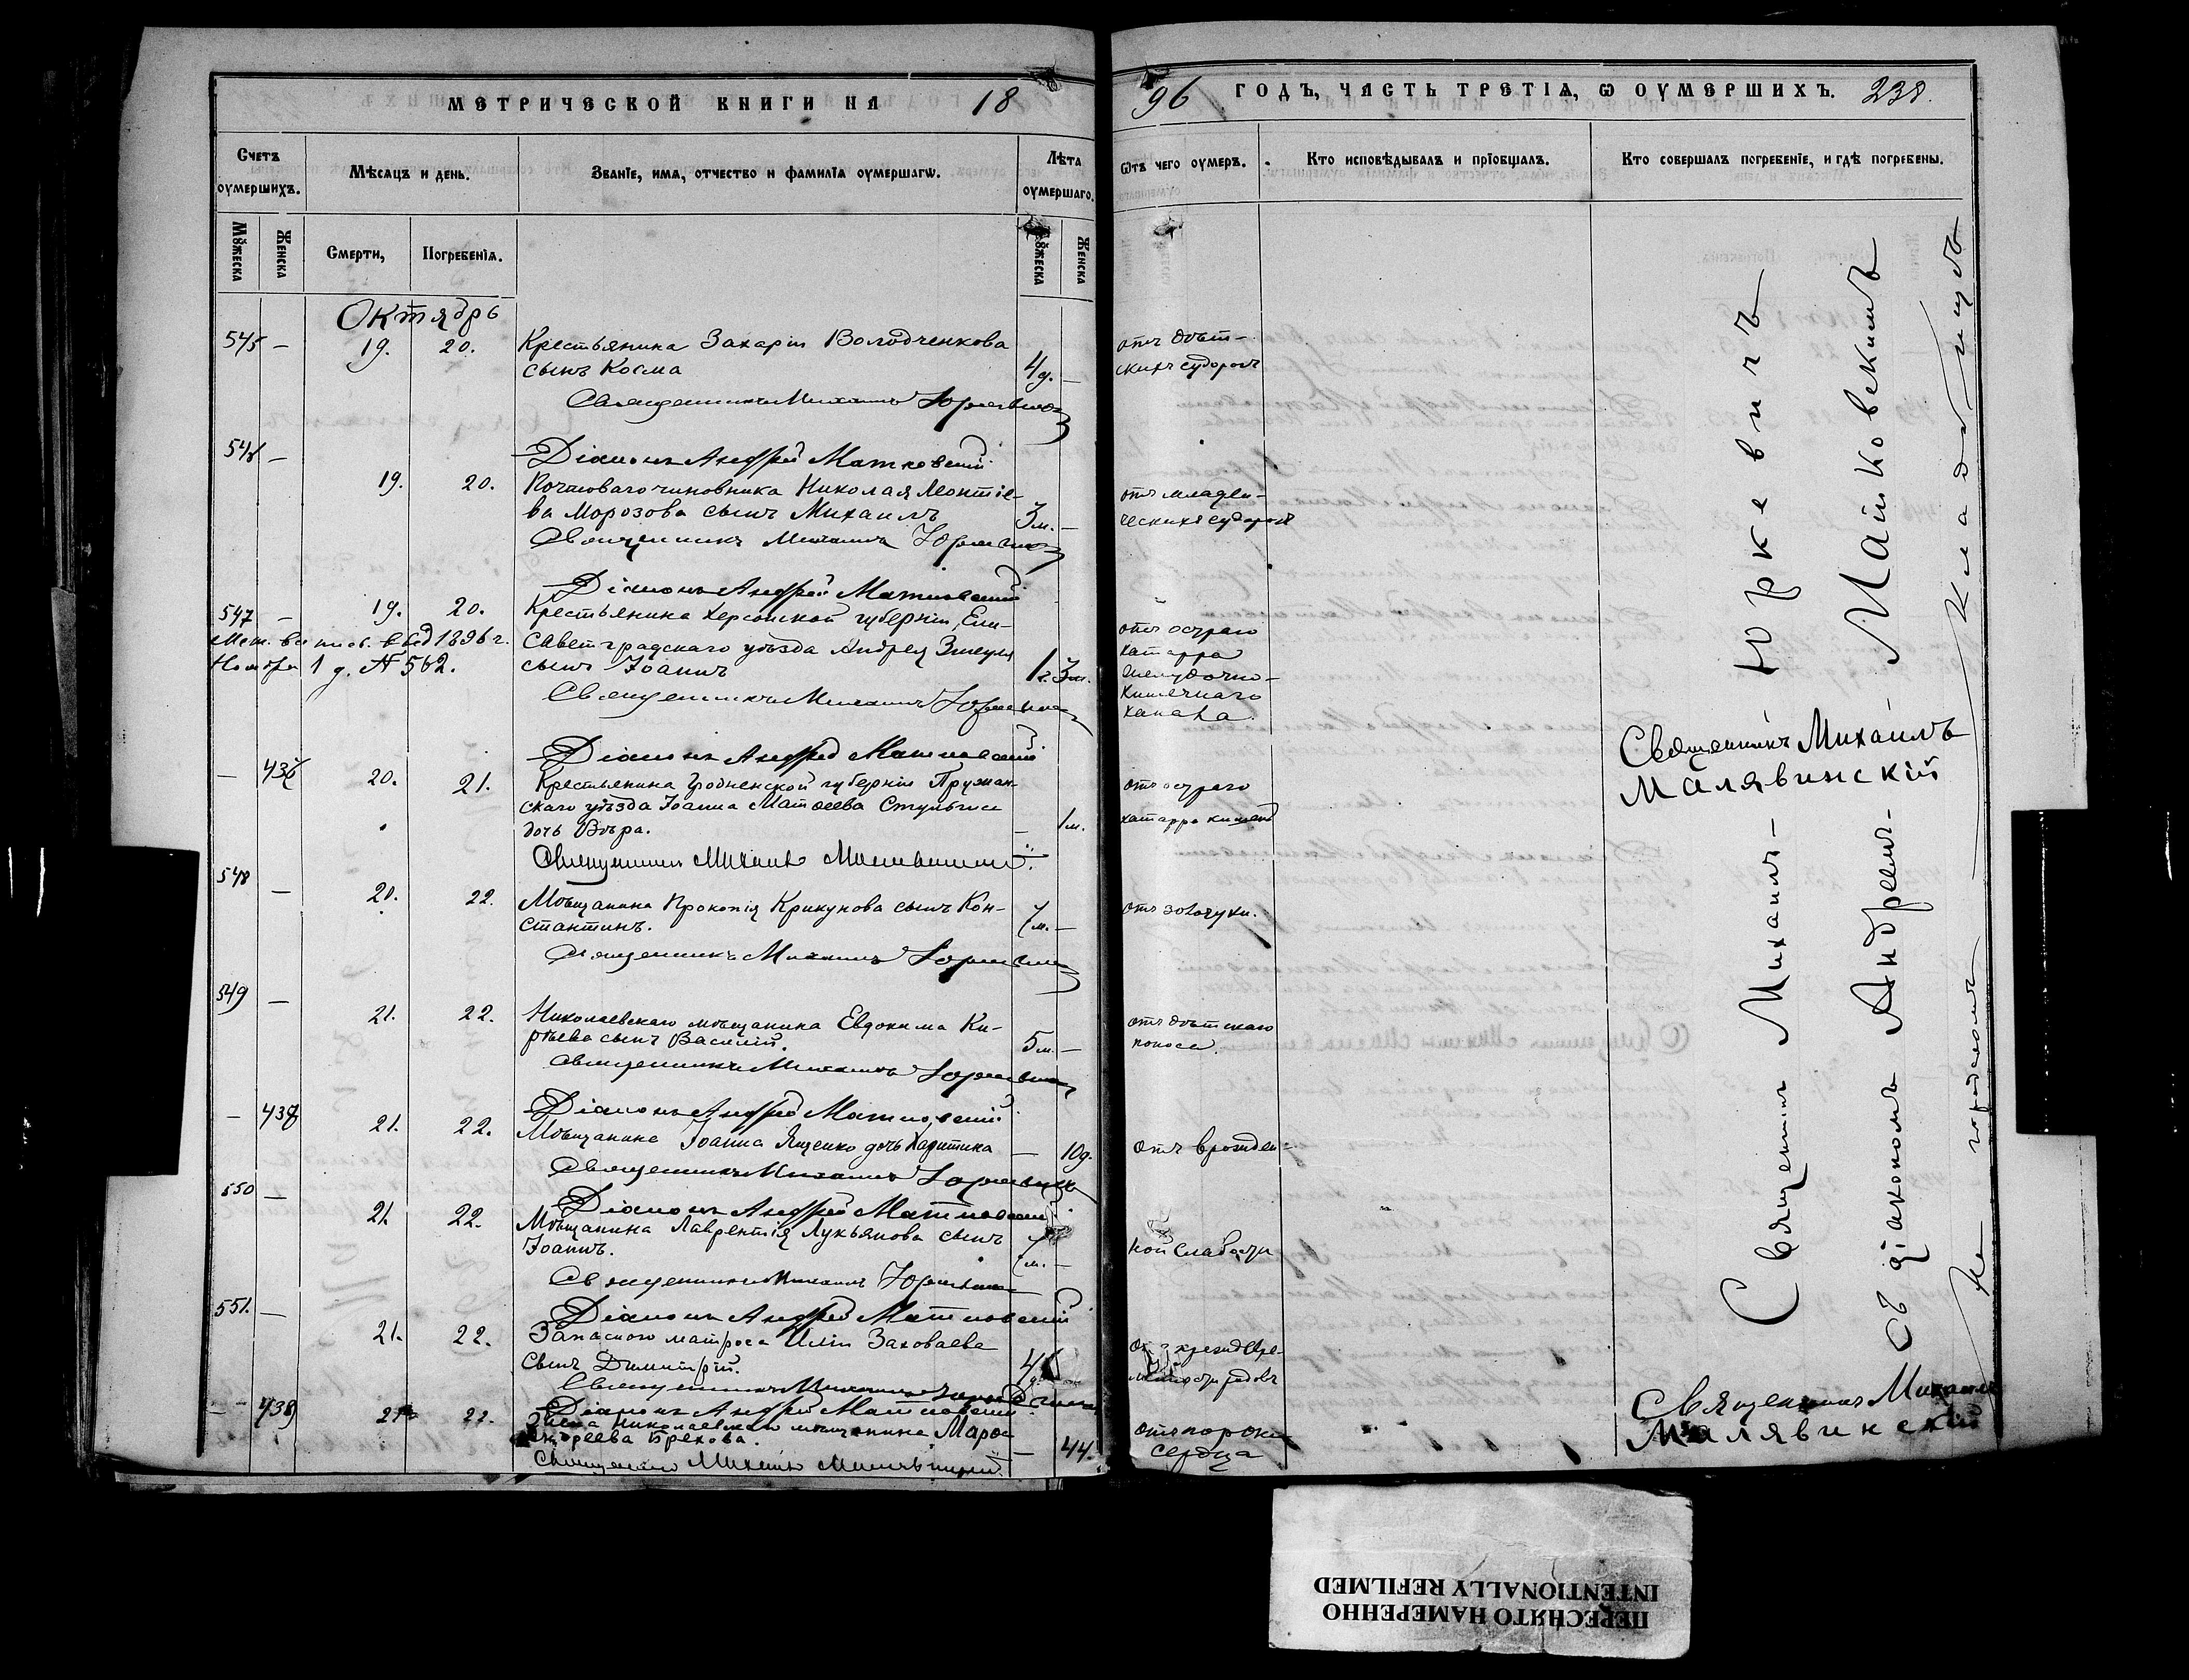 МЕТРИЧЕСКОЙ КНИГИ НА 18
96 ГОДЪ, ЧАСТЬ ТРЕТІѦ, Ѡ ОУМЕРШИХЪ. 238.
Счетъ оумершихъ.
Мѣсѧцъ и день.
Званіе, имѧ, отчество и фамиліѧ оумершагѡ.
Лѣта оумершаго.
Ѿтъ чего оумеръ.
Кто исповѣдывалъ и пріобщалъ.
Кто совершалъ погребеніе, и гдѣ погребены.
Мꙋжеска
Женска
Смерти,
Погребеніѧ.
Мꙋжеска
Женска
Октябрь
545 — 19. 20. Крестьянина Захарія Володченкова
сынъ Косма 4 д. —
отъ дѣт-
скихъ судорогъ
Священникъ Михаилъ Юркевичъ
Діаконъ Андрей Матковскій
546 — 19. 20. Почтоваго чиновника Николая Леонтіе-
ва Морозова сынъ Михаилъ 3 м. —
отъ младен-
ческихъ судорогъ
Священникъ Михаилъ Юркевичъ
Діаконъ Андрей Матковскій
547 — 19. 20. Крестьянина Херсонской губерніи, Ели-
саветградскаго уѣзда Андрея
сынъ Іоаннъ 1 г. 3 м.
1896 г.
Ноября 1 д. № 562.
отъ остраго
катарра
желудочно-
кишечнаго
канала.
Священникъ Михаилъ Юркевичъ
Діаконъ Андрей Матковскій
— 436 20. 21. Крестьянина Гродненской губерніи Пружан-
скаго уѣзда Іоанна Матѳеева
дочь Вѣра. — 1 м.
отъ остраго
катарра кишекъ
Священникъ Михаилъ Малявинскій
Священникъ Михаилъ
Малявинскій
548 — 20. 22. Мѣщанина Прокопія Крикунова сынъ Кон-
стантинъ. 7 м. —
отъ золотухи.
Священникъ Михаилъ Юркевичъ
549 — 21. 22. Николаевскаго мѣщанина Евдокима Ки-
рѣева сынъ Василій. 5 м. —
отъ дѣтскаго
поноса.
Священникъ Михаилъ Юркевичъ
Діаконъ Андрей Матковскій
— 437 21. 22. Мѣщанина Іоанна Яценко дочь Харитина — 10 д.
отъ врожден-
Священникъ Михаилъ Юркевичъ
Діаконъ Андрей Матковскій
550 — 21. 22. Мѣщанина Лаврентія Лукьянова сынъ
Іоаннъ. 7 м. —
ной слабости
Священникъ Михаилъ Юркевичъ
Діаконъ Андрей Матковскій
551. — 21. 22. Запаснаго матроса Иліи
сынъ Димитрій.
Священникъ Михаилъ
Діаконъ Андрей Матковскій
— 438 21. 22. Николаевскаго мѣщанина
Андреева Брехова. — 44.
отъ порока
сердца
Священникъ Михаилъ Малявинскій
Священникъ Михаилъ
Малявинскій
Священникъ Михаилъ — Юркевичъ
съ діакономъ Андреемъ —
На городскомъ — кладбищѣ
ПЕРЕСНЯТО НАМЕРЕННО
INTENTIONALLY REFILMED